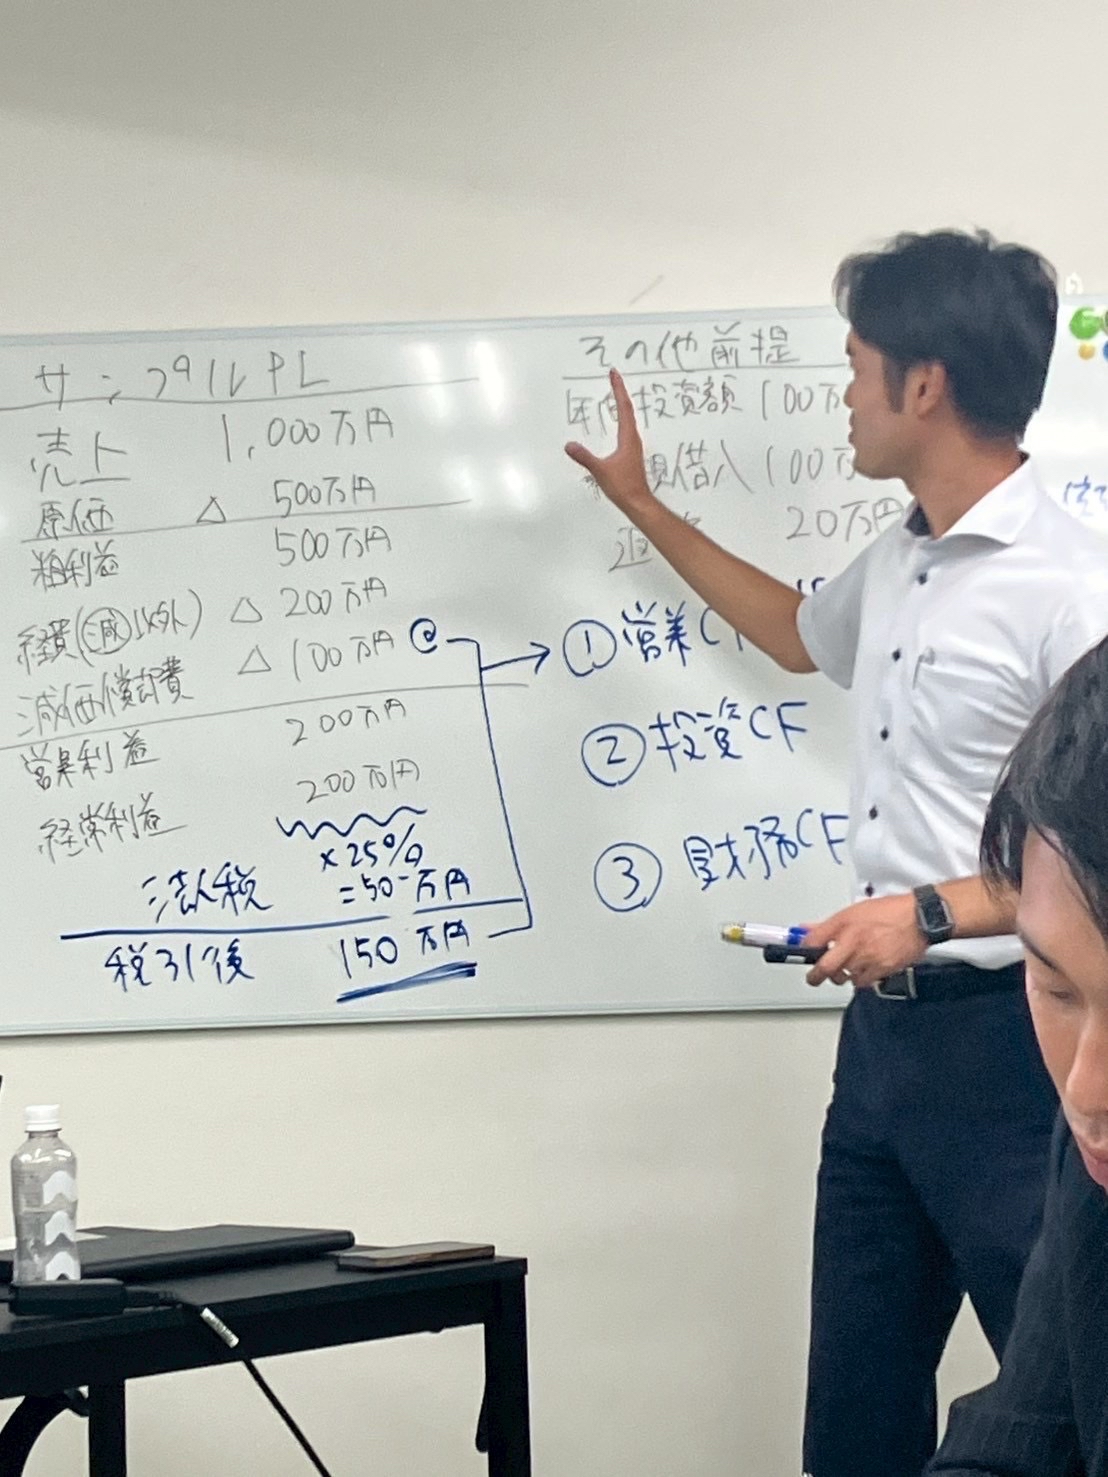 サンプル PL
売上 1,000万円
原価 △ 500万円
粗利益 500万円
経費(減以外) △ 200万円
減価償却費 △ 100万円 @
営業利益 200万円
経常利益 200万円
×25%
法人税 =50万円
税引後 150万円
その他前提
年間投資額 100万
借入 100万
20万円
① 営業C
② 投資CF
③ 財務CF